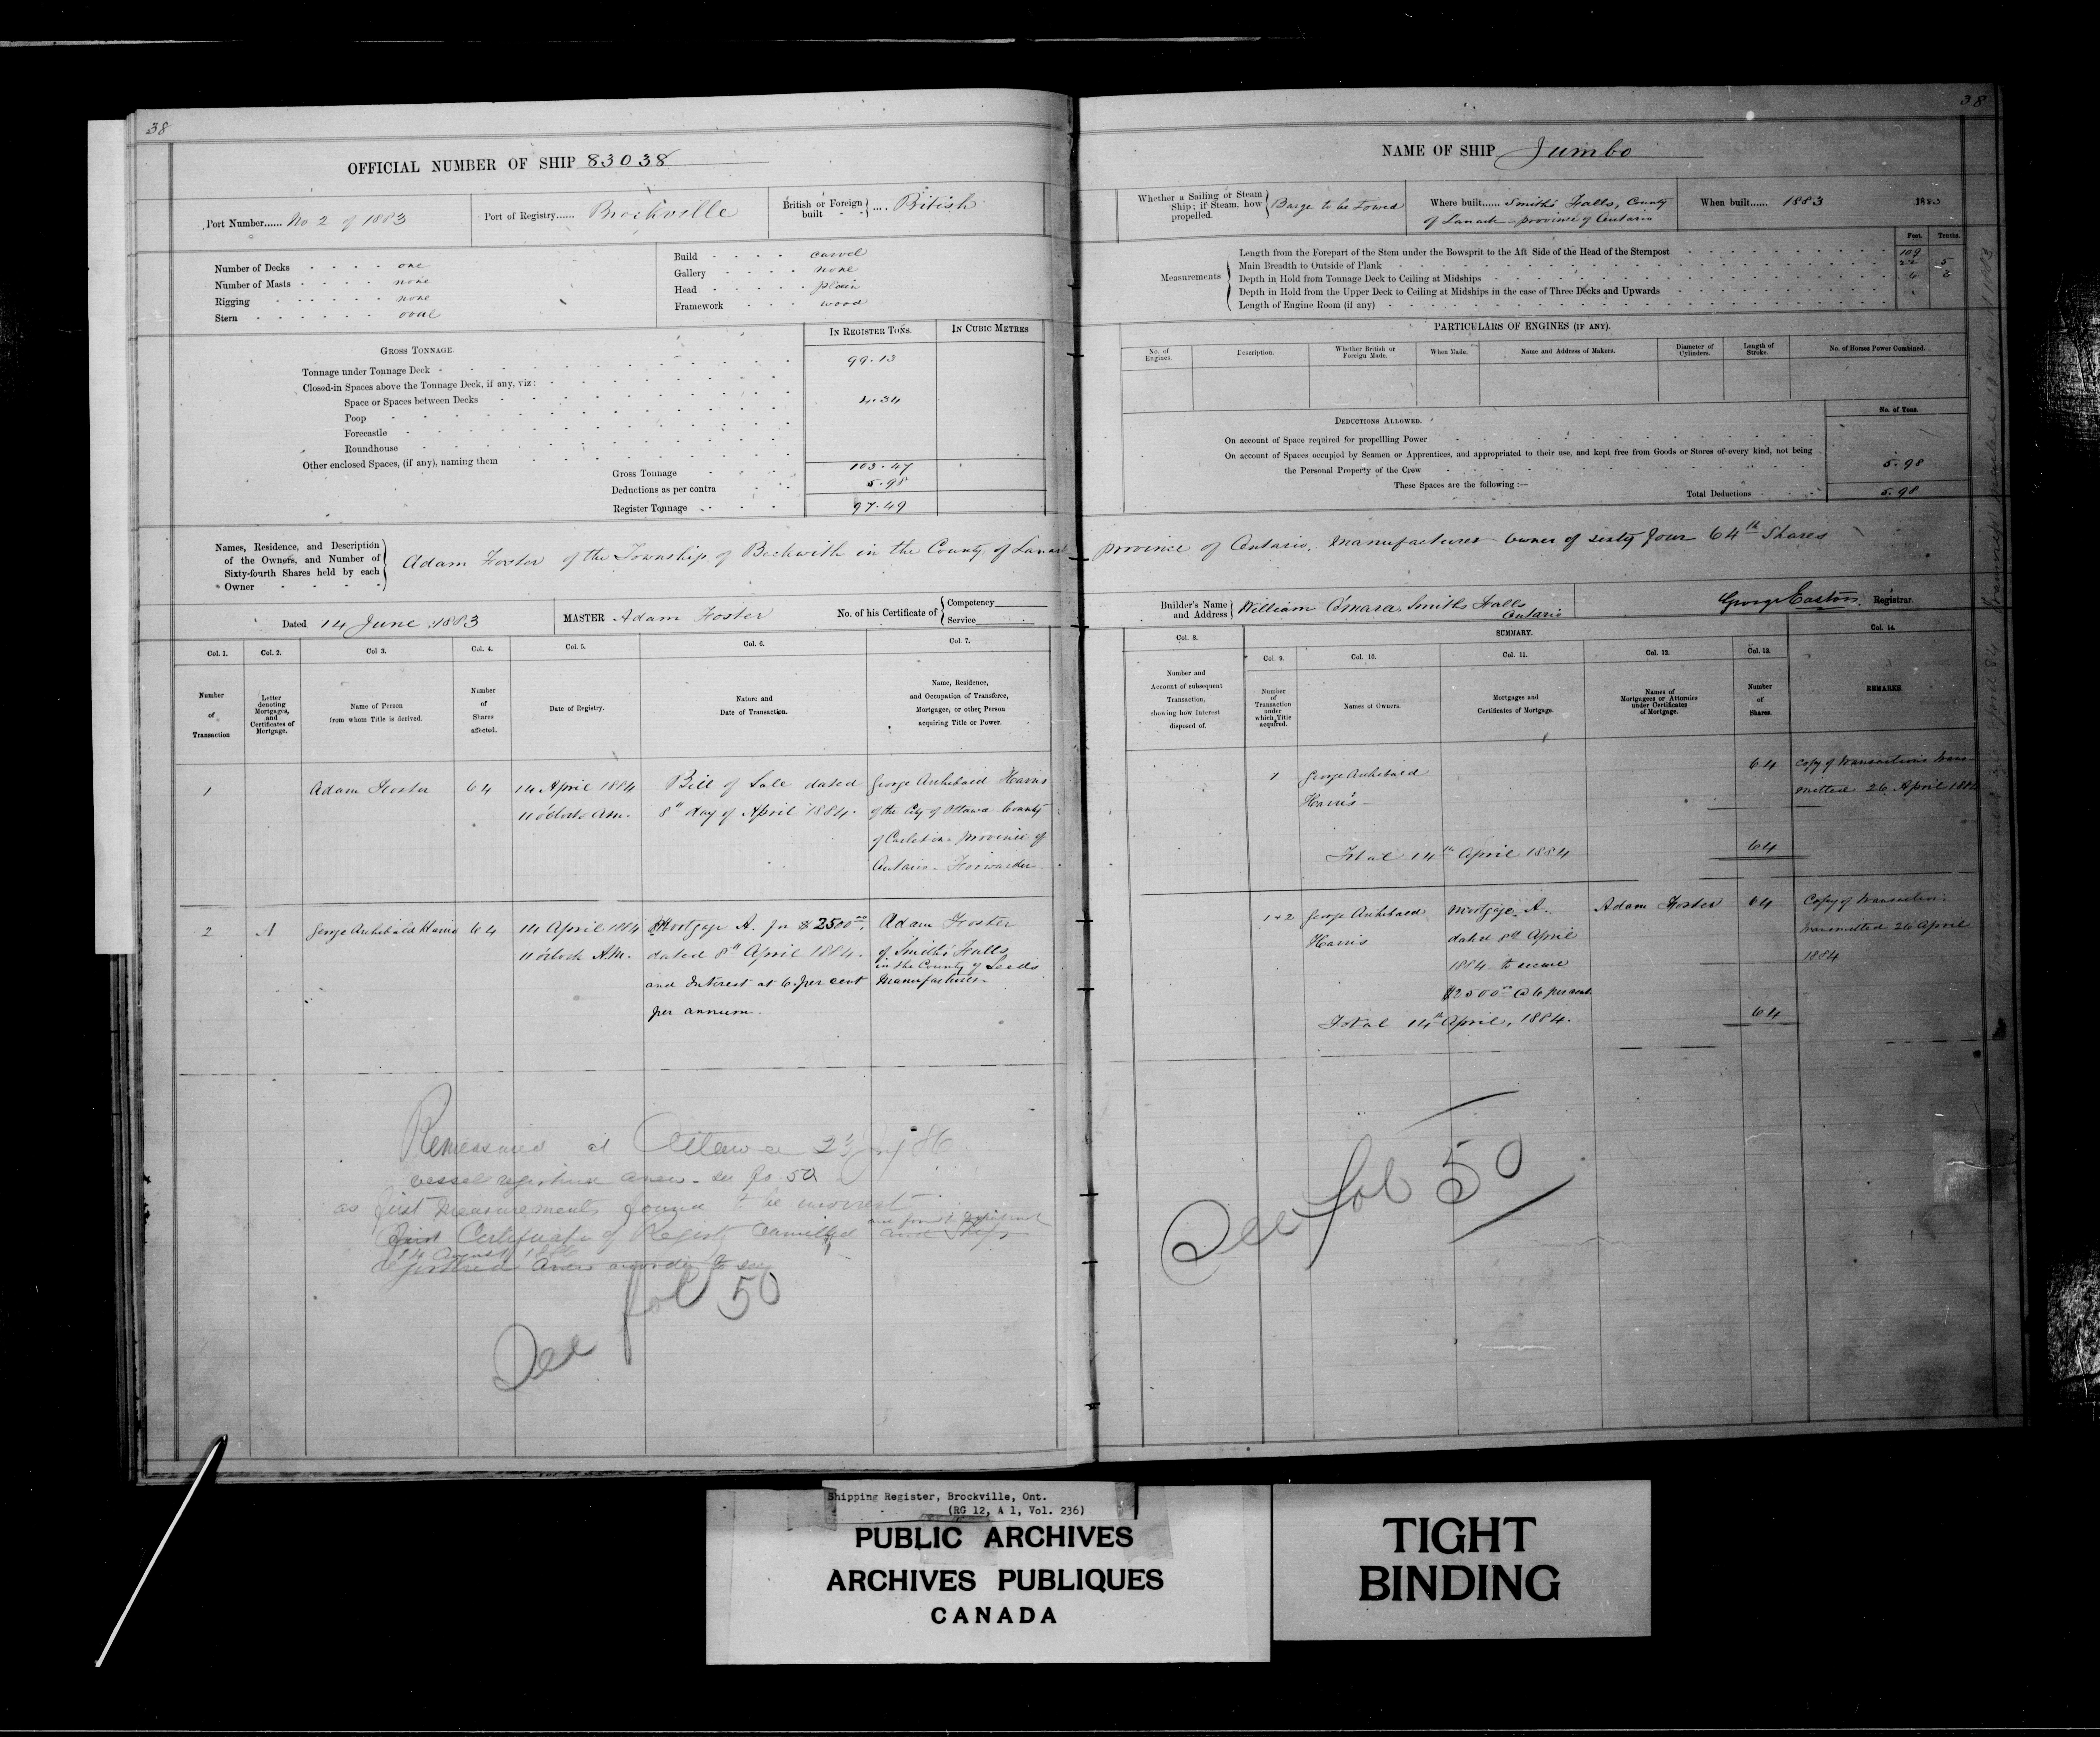 38
OFFICIAL NUMBER OF SHIP 83038
Port Number...... No 2 of 1883
Port of Registry...... Brockville
British or Foreign built .... British
Number of Decks - - - - one
Number of Masts - - - - none
Rigging - - - - none
Stern - - - - oval
Build - - - - carvel
Gallery - - - - none
Head - - - - plain
Framework - - - - wood
IN REGISTER TONS. IN CUBIC METRES
GROSS TONNAGE.
Tonnage under Tonnage Deck - 99.13
Closed-in Spaces above the Tonnage Deck, if any, viz:
Space or Spaces between Decks 4.34
Poop
Forecastle
Roundhouse
Other enclosed Spaces, (if any), naming them
Gross Tonnage 103.47
Deductions as per contra 5.98
Register Tonnage 97.49
Names, Residence, and Description of the Owners, and Number of Sixty-fourth Shares held by each Owner
Adam Foster of the Township of Beckwith in the County of Lanark
Dated 14 June 1883
MASTER Adam Foster
No. of his Certificate of Competency Service
Col. 1. Col. 2. Col 3. Col. 4. Col. 5. Col. 6. Col. 7.
Number of Transaction
Letter denoting Mortgages, and Certificates of Mortgage.
Name of Person from whom Title is derived.
Number of Shares affected.
Date of Registry.
Nature and Date of Transaction.
Name, Residence, and Occupation of Transferee, Mortgagee, or other Person acquiring Title or Power.
1 Adam Foster 64 14 April 1884 Bill of Sale dated George Archibald Harris
11 o'clock A.m. 8th day of April 1884. of the City of Ottawa County
of Carleton province of
Ontario - Forwarder
2 A George Archibald Harris 64 14 April 1884 Mortgage A. for $2500.00 Adam Foster
11 o'clock A.M. dated 8th April 1884. of Smith's Falls
in the County of Leeds
and Interest at 6 per cent Manufacturer
per annum.
Remeasured at Ottawa 23 86
vessel registered anew - see fo. 50
as first measurements found to be incorrect
Certificate of Registry Cancelled
14 August 1886
registered anew
See fol 50
38
NAME OF SHIP Jumbo
Whether a Sailing or Steam Ship; if Steam, how propelled. Barge to be Towed
Where built...... Smith's Falls, County
of Lanark - province of Ontario
When built...... 1883
1883
Feet. Tenths.
Measurements
Length from the Forepart of the Stem under the Bowsprit to the Aft Side of the Head of the Sternpost 109
Main Breadth to Outside of Plank 22 5
Depth in Hold from Tonnage Deck to Ceiling at Midships 4 3
Depth in Hold from the Upper Deck to Ceiling at Midships in the case of Three Decks and Upwards
Length of Engine Room (if any)
PARTICULARS OF ENGINES (IF ANY).
No. of Engines. Description. Whether British or Foreign Made. When Made. Name and Address of Makers. Diameter of Cylinders. Length of Stroke. No. of Horses Power Combined.
DEDUCTIONS ALLOWED. No. of Tons.
On account of Space required for propellling Power
On account of Spaces occupied by Seamen or Apprentices, and appropriated to their use, and kept free from Goods or Stores of every kind, not being
the Personal Property of the Crew 5.98
These Spaces are the following :—
Total Deductions 5.98
province of Ontario, Manufacturer owner of sixty four 64th Shares
Builder's Name and Address William O'mara, Smiths Falls
Ontario
George Easton, Registrar.
SUMMARY.
Col. 8. Col. 9. Col. 10. Col. 11. Col. 12. Col. 13. Col. 14.
Number and Account of subsequent Transaction, showing how Interest disposed of.
Number of Transaction under which Title acquired.
Names of Owners.
Mortgages and Certificates of Mortgage.
Names of Mortgagees or Attornies under Certificates of Mortgage.
Number of Shares.
REMARKS.
1 George Archibald 64 Copy of transactions trans-
Harris mitted 26 April 1884
Total 14th April 1884 64
1 & 2 George Archibald Mortgage A. Adam Foster 64 Copy of transaction
Harris dated 8th April transmitted 26 April
1884 to secure 1884
$2500.00 @ 6 per cent
Total 14th April, 1884. 64
See fol 50
Shipping Register, Brockville, Ont.
(RG 12, A 1, Vol. 236)
PUBLIC ARCHIVES
ARCHIVES PUBLIQUES
CANADA
TIGHT
BINDING